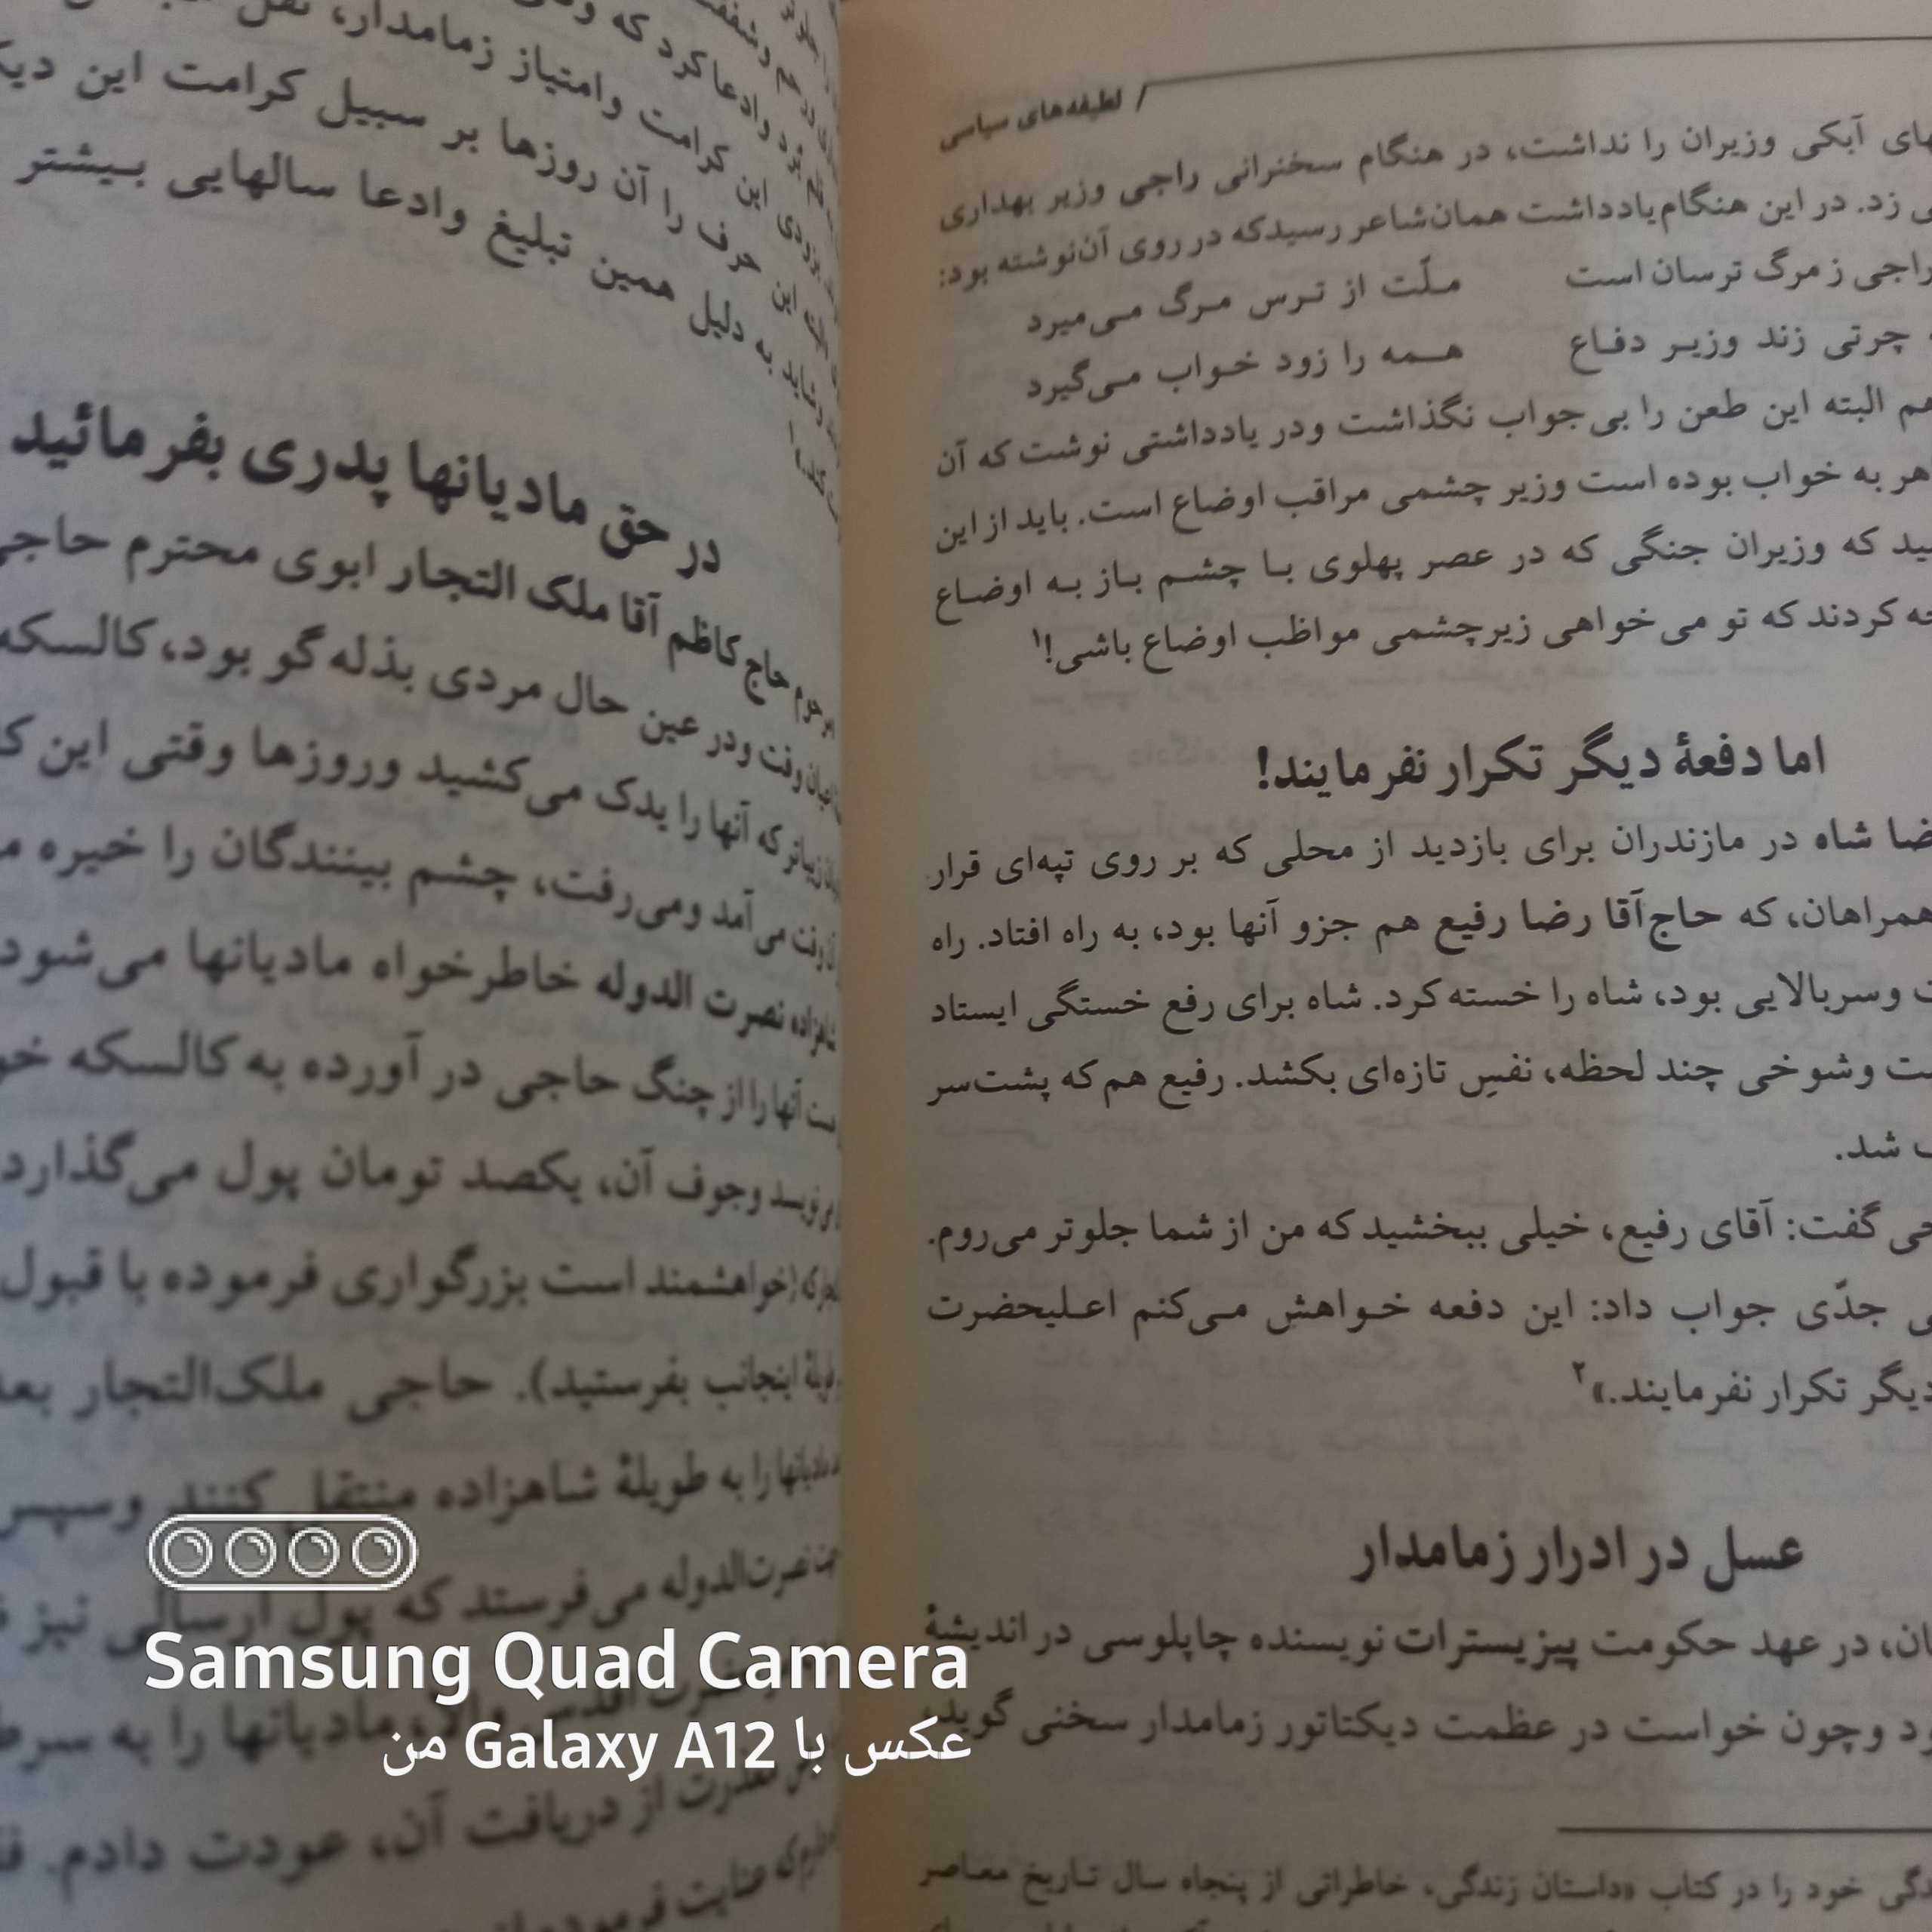 لطیفه‌های سیاسی /
آبکی وزیران را نداشت، در هنگام سخنرانی راجی وزیر بهداری
زد. در این هنگام یادداشت همان شاعر رسید که در روی آن نوشته بود:
راجی ز مرگ ترسان است ملّت از ترس مرگ می‌میرد
چرتی زند وزیر دفاع همه را زود خواب می‌گیرد
هم البته این طعن را بی‌جواب نگذاشت ودر یادداشتی نوشت که آن
به خواب بوده است وزیر چشمی مراقب اوضاع است. باید از این
که وزیران جنگی که در عصر پهلوی با چشم باز به اوضاع
کردند که تو می‌خواهی زیرچشمی مواظب اوضاع باشی!۱
اما دفعهٔ دیگر تکرار نفرمایند!
شاه در مازندران برای بازدید از محلی که بر روی تپه‌ای قرار
همراهان، که حاج‌آقا رضا رفیع هم جزو آنها بود، به راه افتاد. راه
وسربالایی بود، شاه را خسته کرد. شاه برای رفع خستگی ایستاد
وشوخی چند لحظه، نفسِ تازه‌ای بکشد. رفیع هم که پشت‌سر
شد.
گفت: آقای رفیع، خیلی ببخشید که من از شما جلوتر می‌روم.
جدّی جواب داد: این دفعه خواهش می‌کنم اعلیحضرت
دیگر تکرار نفرمایند.»۲
عسل در ادرار زمامدار
در عهد حکومت پیزیسترات نویسنده چاپلوسی در اندیشهٔ
وچون خواست در عظمت دیکتاتور زمامدار سخنی گوید،
خود را در کتاب «داستان زندگی، خاطراتی از پنجاه سال تاریخ معاصر
وادعا کرد که
این کرامت وامتیاز زمامدار،
این حرف را آن روزها بر سبیل کرامت این
به دلیل همین تبلیغ وادعا سالهایی بیشتر
در حق مادیانها پدری بفرمائید
مرحوم حاج کاظم آقا ملک التجار ابوی محترم حاجی
وقت ودر عین حال مردی بذله‌گو بود، کالسکه
زیباتر که آنها را یدک می‌کشید وروزها وقتی این
می‌آمد ومی‌رفت، چشم بینندگان را خیره
شاهزاده نصرت الدوله خاطرخواه مادیانها می‌شود
آنها را از چنگ حاجی در آورده به کالسکه
می‌نویسد وجوف آن، یکصد تومان پول می‌گذارد
که (خواهشمند است بزرگواری فرموده با قبول
اینجانب بفرستید). حاجی ملک‌التجار
را به طویلهٔ شاهزاده منتقل کنند وسپس
نصرت‌الدوله می‌فرستد که پول ارسالی نیز
مادیانها را به
از دریافت آن، عودت دادم.
که عنایت فرموده
Samsung Quad Camera
عکس با Galaxy A12 من